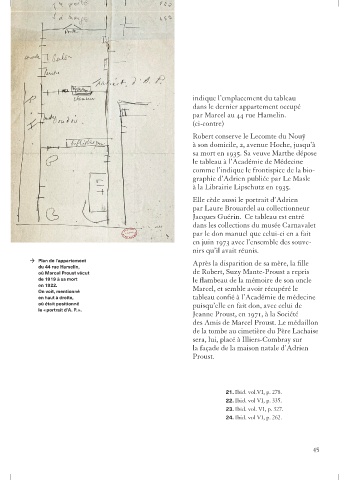 indique l'emplacement du tableau
dans le dernier appartement occupé
par Marcel au 44 rue Hamelin.
(ci-contre)
Robert conserve le Lecomte du Nouÿ
à son domicile, 2, avenue Hoche, jusqu'à
sa mort en 1935. Sa veuve Marthe dépose
le tableau à l'Académie de Médecine
comme l'indique le frontispice de la bio-
graphie d'Adrien publiée par Le Masle
à la Librairie Lipschutz en 1935.
Elle cède aussi le portrait d'Adrien
par Laure Brouardel au collectionneur
Jacques Guérin. Ce tableau est entré
dans les collections du musée Carnavalet
par le don manuel que celui-ci en a fait
en juin 1973 avec l'ensemble des souve-
nirs qu'il avait réunis.
Après la disparition de sa mère, la fille
de Robert, Suzy Mante-Proust a repris
le flambeau de la mémoire de son oncle
Marcel, et semble avoir récupéré le
tableau confié à l'Académie de médecine
puisqu'elle en fait don, avec celui de
Jeanne Proust, en 1971, à la Société
des Amis de Marcel Proust. Le médaillon
de la tombe au cimetière du Père Lachaise
sera, lui, placé à Illiers-Combray sur
la façade de la maison natale d'Adrien
Proust.
→ Plan de l'appartement
du 44 rue Hamelin,
où Marcel Proust vécut
de 1919 à sa mort
en 1922.
On voit, mentionné
en haut à droite,
où était positionné
le « portrait d'A. P. ».
21. Ibid. vol.VI, p. 278.
22. Ibid. vol VI, p. 335.
23. Ibid. vol. VI, p. 327.
24. Ibid. vol VI, p. 262.
45